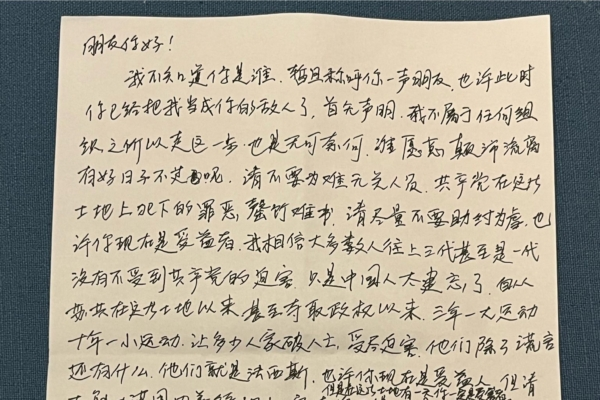 朋友你好!
我不知道你是谁. 暂且称呼你一声朋友, 也许此时
你已经把我当成你的敌人了, 首先声明. 我不属于任何组
织之所以走这一步. 也是无可奈何. 谁愿意颠沛流离
有好日子不过呢. 请不要为难无关人员. 共产党在这片
土地上犯下的罪恶, 罄竹难书. 请尽量不要助纣为虐, 也
许你现在是受益者. 我相信大多数人往上三代甚至是一代
没有不受到共产党的迫害. 只是中国人太健忘了. 自从
苏共在这片土地以来. 甚至夺取政权以来. 三年一大运动
十年一小运动. 让多少人家破人亡, 受尽迫害. 他们除了谎言
还有什么. 他们就是法西斯. 也许你现在是受益人. 但请
但是在这片土地有一天你一